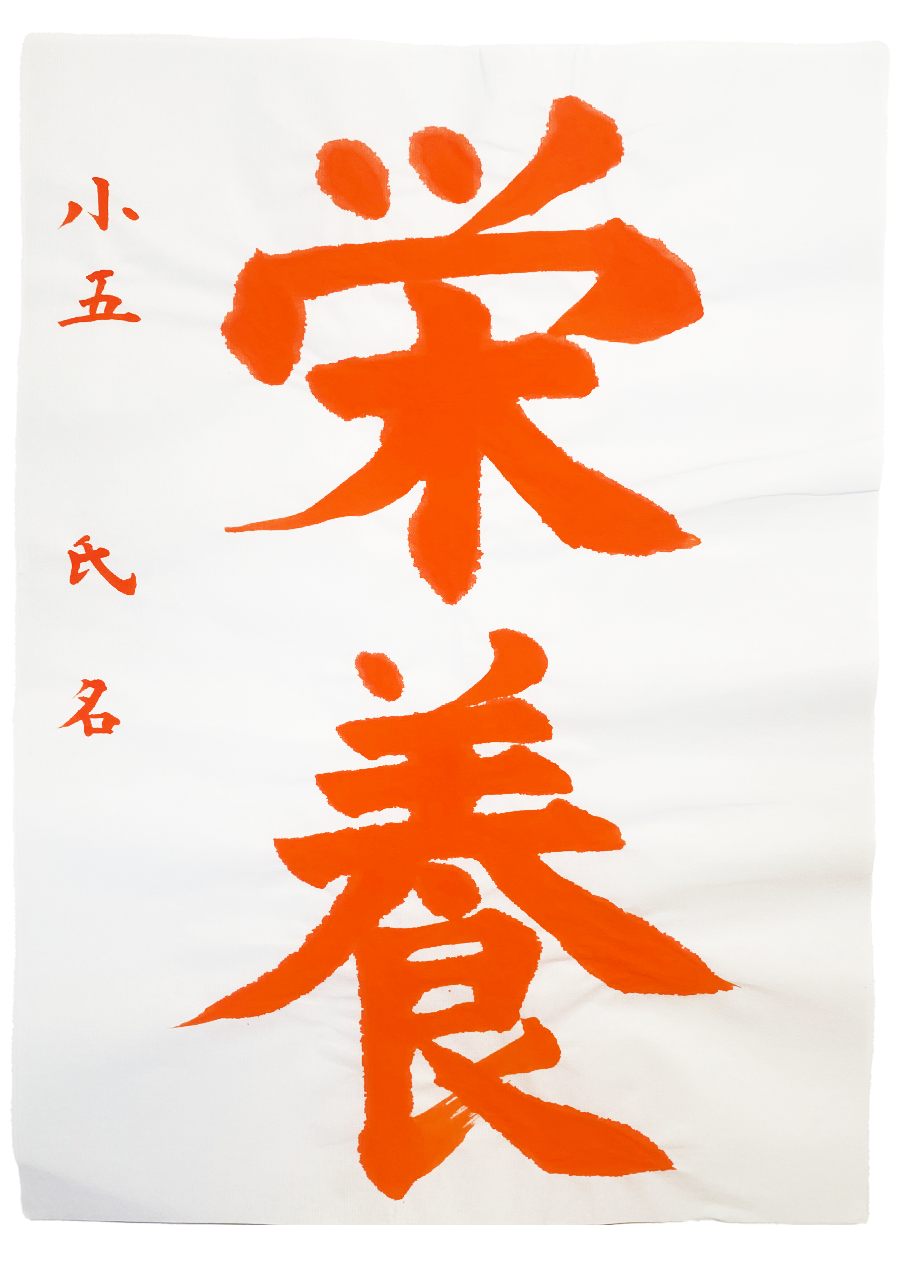 栄養
小五 氏名